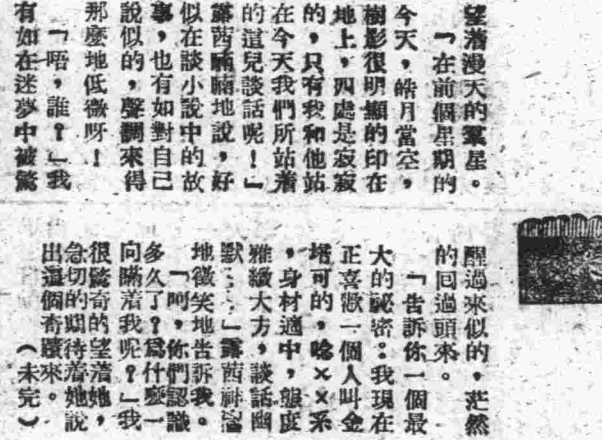 望着漫天的羣星。
「在前個星期的
今天，皓月當空，
樹影很明顯的印在
地上，四處是寂寂
的，只有我和他站
在今天我們所站着
的這兒談話呢！」
露茜喃喃地說，好
似在談小說中的故
事，也有如對自己
說似的，聲調來得
那麽地低微呀！
「唔，誰？」我
有如在迷夢中被驚
醒過來似的，茫然
的囘過頭來。
「告訴你一個最
大的祕密：我現在
正喜歡一個人叫金
塔可的，唸××系
，身材適中，態度
雅緻大方，談話幽
默……」露茜神祕
地微笑地告訴我。
「呵，你們認識
多久了？爲什麽一
向瞞着我呢？」我
很驚奇的望着她，
急切的期待着她說
出這個奇蹟來。
（未完）